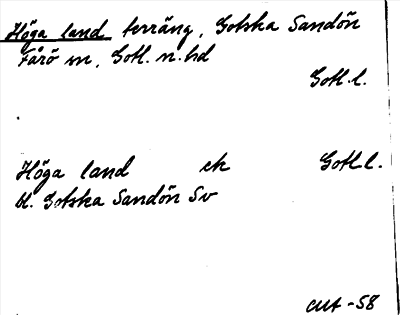 Höga land terräng, Gotska Sandön
Fårö sn, Gotl. n. hd
Gotl. l.
Höga land ek Gotl l.
bl. Gotska Sandön Sv
-58